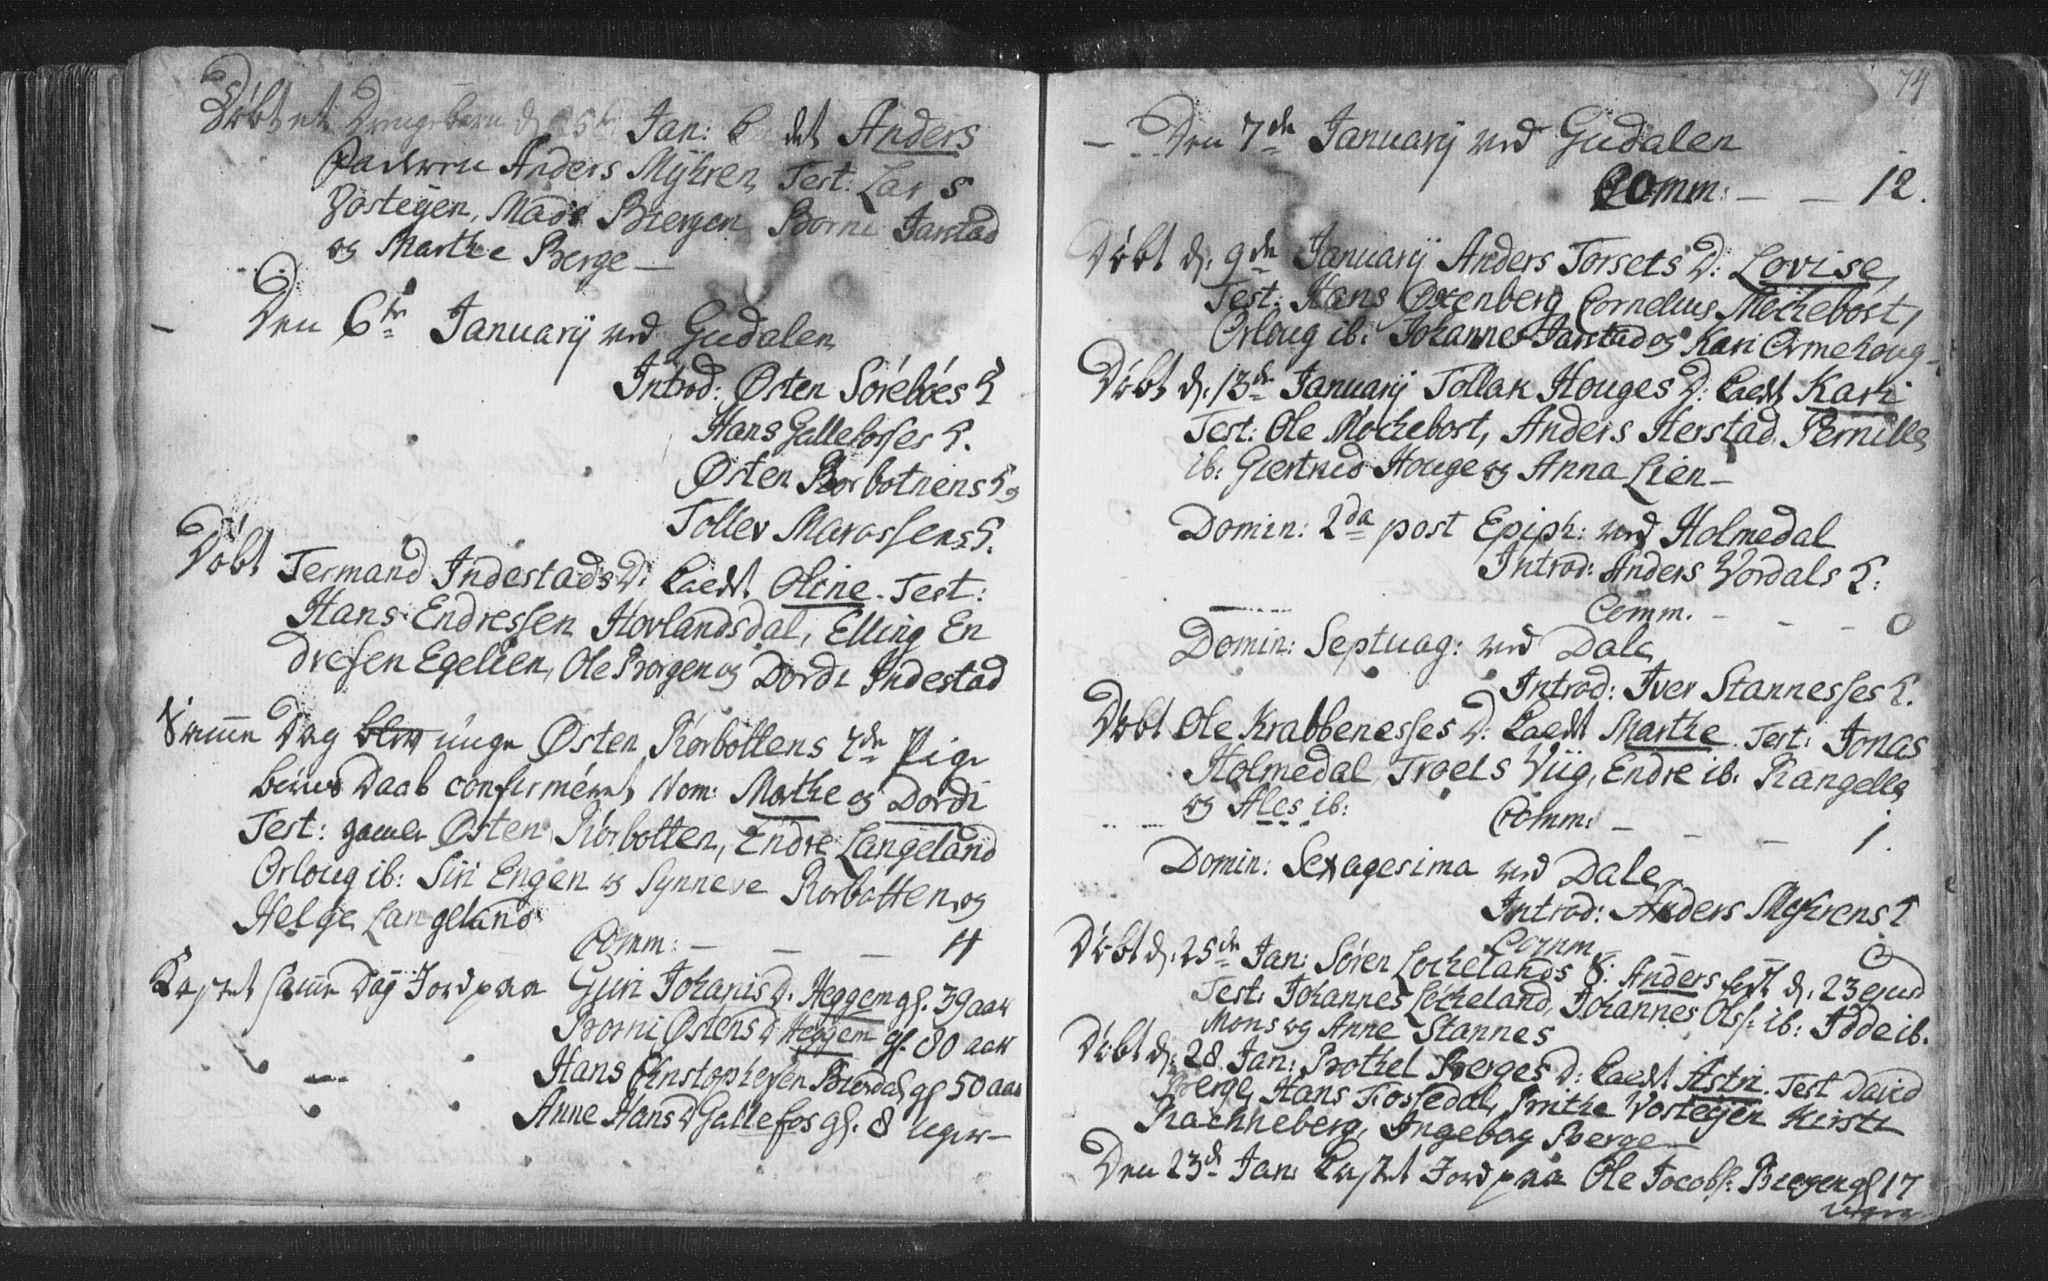 Døbt et Drengebarn d. 25de Jan: det Anders
Faderen Anders Mÿhren, Test: Lars
Vostegen, Mads Biergen Borni Jarstad
og Marthe Berge —
Den 6te Januarij ved Gudalen
Introd: Østen Sørebøes K
Hans Gallefosses K.
Østen Rorbotnens K og
Tollev Marassens K.
Døbt Termand Indestads D: kaedt Oline. Test:
Hans Endressen Hovlandsdal, Elling En
dresen Egelien, Ole Borgen og Dordi Indestad
Samme Dag blev unge Østen Rørbottens 2de Pige
børns Daab confirmeret, Nom: Marthe og Dordi
Test: gamle Østen Rørbotten, Endre Langeland
Orloug ib: Siri Engen og Synneve Rorbotten, og
Helge Langeland
Comm: — — — 4
Kastet samme Dag Jord paa Guri Johanis D. Heggem gl. 39 aar
Borni Østens D Heggem gl. 80 aar
Hans Christophersen Bierdal gl 50 aar
Anne Hans D Gallefos gl. 8 uger —
74
— Den 7de Januarij ved Gudalen
Comm: — — 12.
Døbt d. 9de Januarij Anders Torsets D: Lovise,
Test: Hans Østenberg Cornelius Møchebost,
Orloug ib: Johannes Jarstad og Kari Ormehoug —
Døbt d. 13de Januarij Tollak Houges D: kaedt Kari
Test: Ole Møchebost, Anders Herstad, Pernille
ib: Giertrud Houge og Anna Lien —
Domin: 2da post Epiph: ved Holmedal
Introd: Anders Vordals K:
Comm. — — — 0
Domin: Septuag: ved Dale
Introd: Iver Stannesses K.
Døbt Ole Krabbenesses D: kaedt Marthe. Test: Jonas
Holmedal, Troels Viig, Endre ib: Rangella
og Ales ib:
Comm: — — — 1.
Domin: Sexagesima ved Dale
Introd: Anders Mÿhrens K
Comm — 0
Døbt d. 25de Jan: Søren Løchelands S: Anders født d. 23 ejusd
Test: Johannes Løcheland, Johannes Ols: ib: Idde ib.
Mons og Anne Stannes
Døbt d. 28. Jan: Bothel Berges D: kaedt Astri. Test David
Berge, Hans Fossedal, Brithe Vostegen Kirsti
Rachneberg, Ingebor Berge —
Den 23de Jan: kastet Jord paa Ole Jacobs: Biergen gl 17
uger